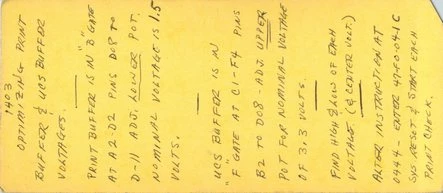 1403
OPTIMIZING PRINT
BUFFER & UCS BUFFER
VOLTAGES.
PRINT BUFFER IS IN "B" GATE
AT A2-D2 PINS D08 TO
D-11 ADJ. LOWER POT.
NOMINAL VOLTAGE IS 1.5
VOLTS.
"UCS BUFFER IS IN
"F GATE AT C1-F4 PINS
B2 TO D08 - ADJ. UPPER
POT FOR NOMINAL VOLTAGE
OF 3.3 VOLTS.
FIND HIGH & LOW OF EACH
VOLTAGE (& CENTER VOLT.)
AFTER INSTRUCTION AT
4444 - ENTER 49-00-04-1C
SYS RESET & START EACH
PRINT CHECK.